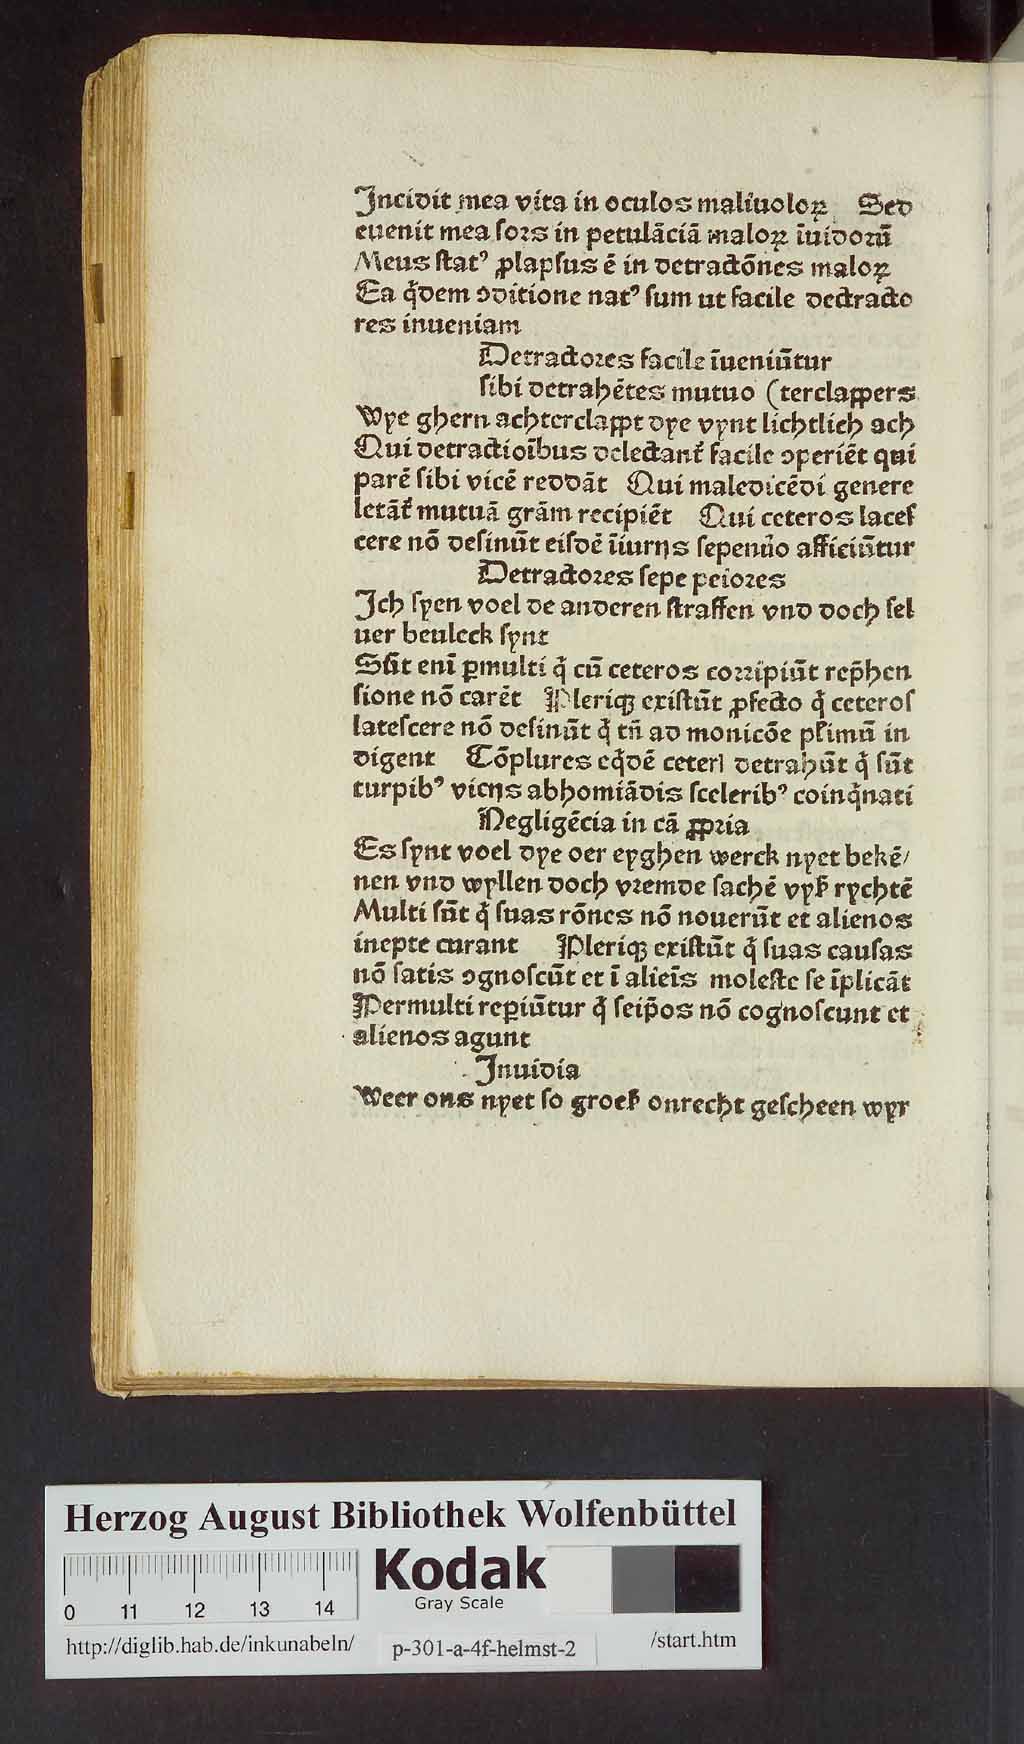 Incidit mea vita in oculos maliuoloꝝ Sed
euenit mea ſors in petulāciā maloꝝ īuidorū
Meus ſtatꝰ ꝓlapſus ē in detractōnes maloꝝ
Ea q̄dem ↄditione natꝰ ſum ut facile dectracto
res inueniam
Detractores facile īueniūtur
ſibi detrahētes mutuo (terclappers
Wye ghern achterclappt dye vynt lichtlich ach
Qui detractioībus delectant᷑ facile ↄperiēt qui
parē ſibi vicē reddāt Qui maledicēdi genere
letāt᷑ mutuā grām recipiēt Qui ceteros laceſ
cere nō deſinūt eiſdē īiurijs ſepenūo afficiūtur
Detractores ſepe peiores
Ich ſyen voel de anderen ſtraffen vnd doch ſel
uer beuleck ſynt
Sūt enī ꝑmulti q̄ cū ceteros corripiūt rep̄hen
ſione nō carēt Pleriqꝫ exiſtūt ꝓfecto q̄ ceteroſ
lateſcere nō deſinūt q̄ tn̄ ad monicōe pl᷑imū in
digent Cōplures eq̄dē ceteri detrahūt q̄ ſūt
turpibꝰ vicijs abhomiādis ſceleribꝰ coinq̄nati
Negligēcia in cā ꝓpria
Es ſynt voel dye oer eyghen werck nyet bekē/
nen vnd wyllen doch vremde ſachē vyſz rychtē
Multi ſūt q̄ ſuas rōnes nō nouerūt et alienos
inepte curant Pleriqꝫ exiſtūt q̄ ſuas cauſas
nō ſatis ↄgnoſcūt et ī alieīs moleſte ſe īplicāt
Permulti reꝑiūtur q̄ ſeip̄os nō cognoſcunt et
alienos agunt
Inuidia
Weer ons nyet ſo groeſz onrecht geſcheen wyr
Herzog August Bibliothek Wolfenbüttel
Kodak
Gray Scale
0 11 12 13 14
http://diglib.hab.de/inkunabeln/ p-301-a-4f-helmst-2 /start.htm